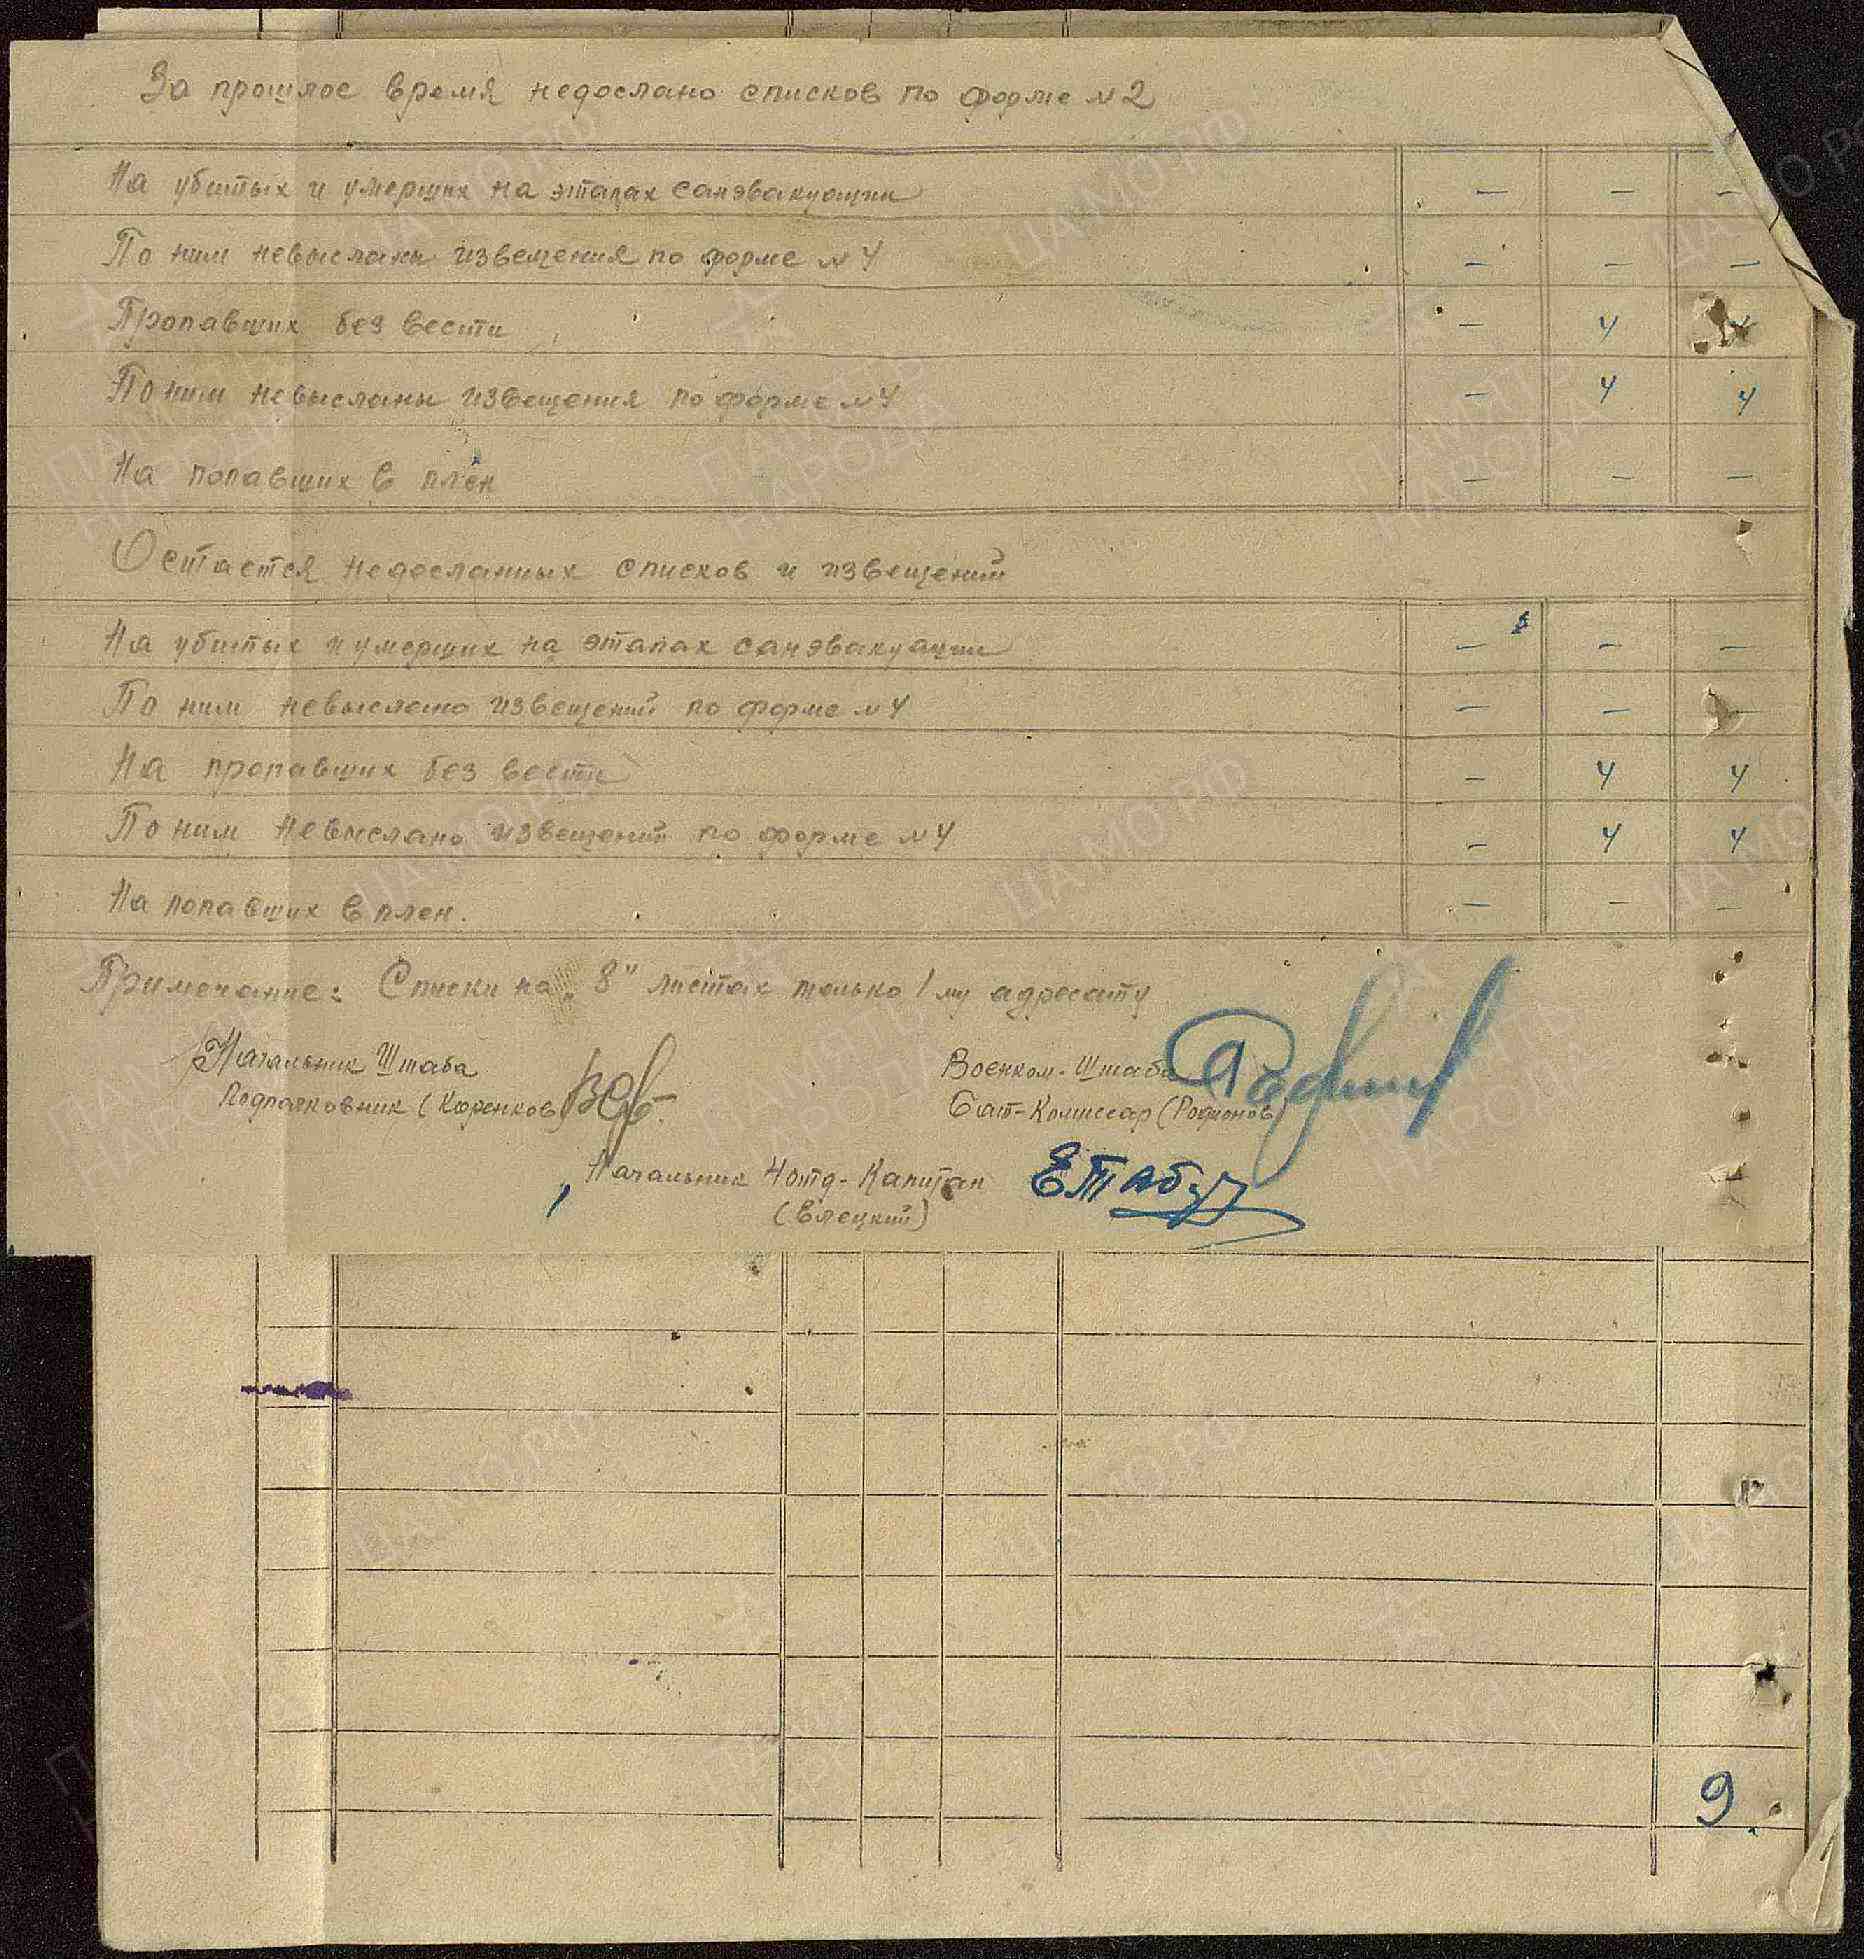 За прошлое время недослано списков по форме №2
На убитых и умерших на этапах санэвакуации — — —
По ним невысланы извещения по форме №4 — — —
Пропавших без вести — 4 4
По ним невысланы извещения по форме №4 — 4 4
На попавших в плен — — —
Остается недосланных списков и извещений
На убитых и умерших на этапах санэвакуации — — —
По ним невыслано извещений по форме №4 — — —
На пропавших без вести — 4 4
По ним невыслано извещений по форме №4 — 4 4
На попавших в плен. — — —
Примечание: Списки на „8" листах только 1му адресату
Начальник Штаба
Подполковник (Коренков)
Военком-Штаба
Бат-Комиссар (Родионов)
Начальник 4отд-Капитан
(Елецкий)
9
ЦАМО.РФ
ПАМЯТЬ
НАРОДА